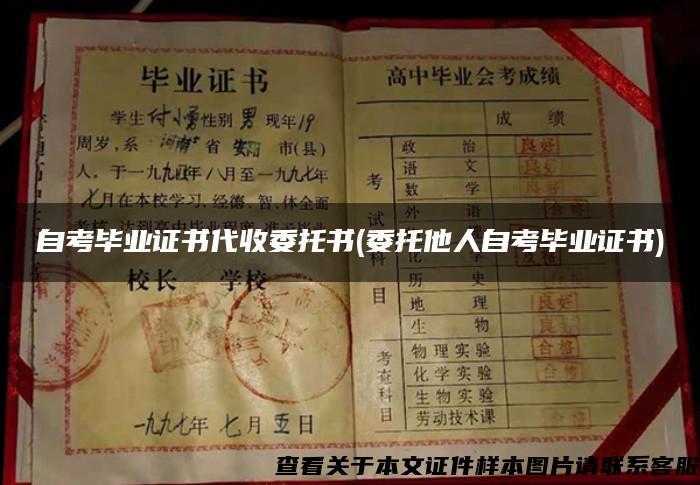 毕业证书
学生付小勇性别男现年19
周岁,系河南省安阳市(县)
人。于一九九四年八月至一九九七年
七月在本校学习、经德、智、体全面
自考毕业证书代收委托书(委托他人自考毕业证书)
校长 学校
一九九七年七月五日
高中毕业会考成绩
成绩
考试科目
政治 良好
语文 良好
数学 良好
外语 合格
化学
历史
地理 良好
生物
考查科目
物理实验 合格
化学实验 合格
生物实验
劳动技术课 合格
查看关于本文证件样本图片请联系客服